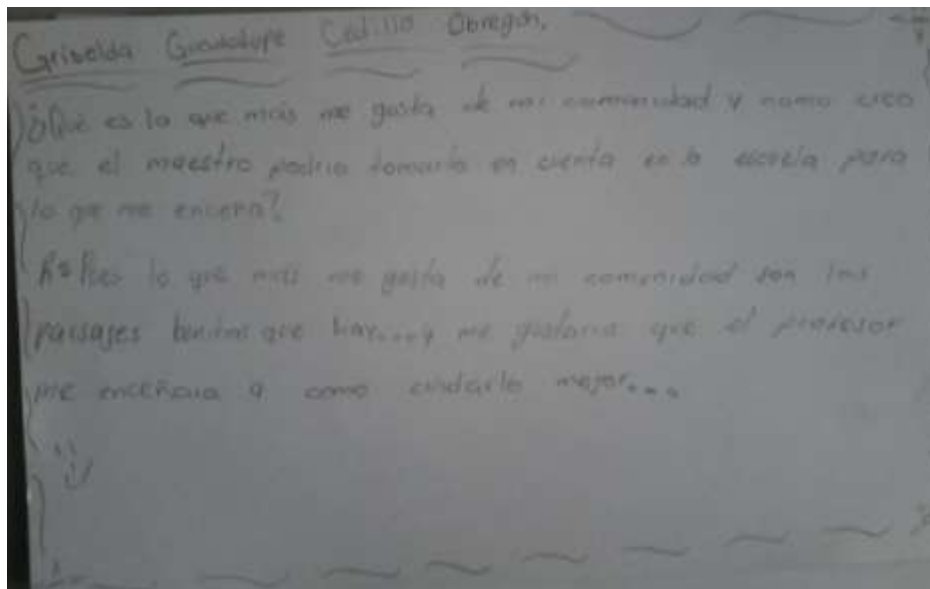 Griselda Guadalupe Cedillo Obregon.
¿Qué es lo que más me gusta de mi comunidad y como creo
que el maestro podria tomarlo en cuenta en la escuela para
lo que me enceña?
R= Pues lo que más me gusta de mi comunidad son los
paisajes bonitos que hay....y me gustaria que el profesor
me enceñara a como cuidarlos mejor....